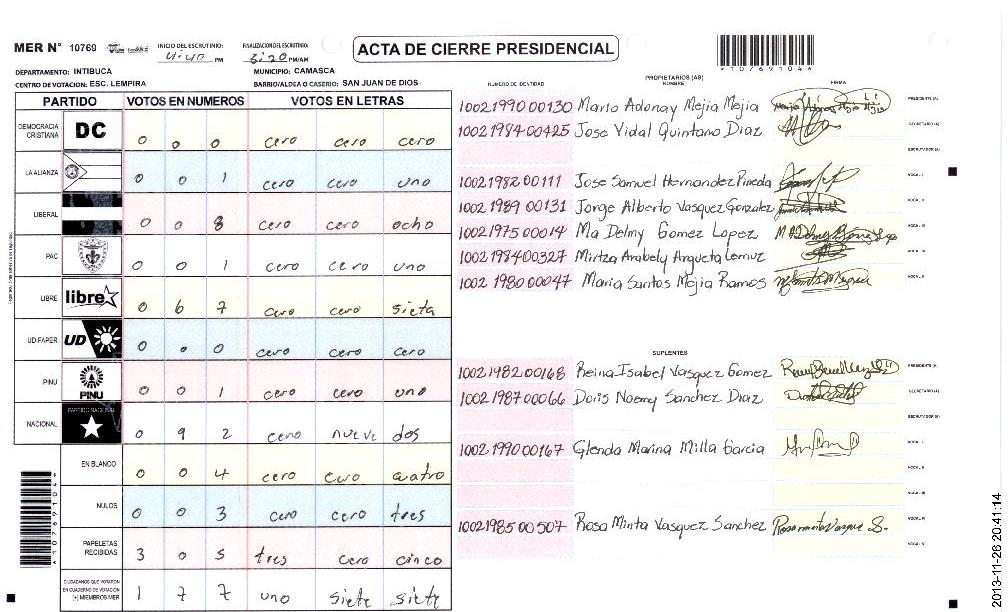 MER N° 10769
INICIO DEL ESCRUTINIO:
4:40 PM
FINALIZACION DEL ESCRUTINIO:
5:20 PM/AM
ACTA DE CIERRE PRESIDENCIAL
DEPARTAMENTO: INTIBUCA
MUNICIPIO: CAMASCA
CENTRO DE VOTACION: ESC. LEMPIRA
BARRIO/ALDEA O CASERIO: SAN JUAN DE DIOS
*10769104*
PARTIDO VOTOS EN NUMEROS VOTOS EN LETRAS
DEMOCRACIA CRISTIANA DC 0 0 0 cero cero cero
LA ALIANZA 0 0 1 cero cero uno
LIBERAL 0 0 8 cero cero ocho
PAC 0 0 1 cero cero uno
LIBRE libre 0 6 7 cero cero sieta
UD-FAPER UD 0 0 0 cero cero cero
PINU PINU 0 0 1 cero cero uno
NACIONAL PARTIDO NACIONAL 0 9 2 cero nueve dos
EN BLANCO 0 0 4 cero cero cuatro
NULOS 0 0 3 cero cero tres
PAPELETAS RECIBIDAS 3 0 5 tres cero cinco
CIUDADANOS QUE VOTARON EN CUADERNO DE VOTACION (+) MIEMBROS MER 1 7 7 uno siete siete
NUMERO DE IDENTIDAD PROPIETARIOS (AS) NOMBRE FIRMA
1002199000130 Mario Adonay Mejia Mejia PRESIDENTE (A)
1002198400425 Jose Vidal Quintano Diaz SECRETARIO (A)
ESCRUTADOR (A)
1002198200111 Jose Samuel Hernandez Pineda VOCAL I
1002198900131 Jorge Alberto Vasquez Gonzalez VOCAL II
1002197500014 Ma Delmy Gomez Lopez VOCAL III
1002198400327 Mirtza Arabely Argueta Lemuz VOCAL IV
1002198000047 Maria Santos Mejia Ramos VOCAL V
SUPLENTES
1002198200168 Reina Isabel Vasquez Gomez PRESIDENTE (A)
1002198700066 Doris Noemy Sanchez Diaz SECRETARIO (A)
ESCRUTADOR (A)
1002199000167 Glenda Marina Milla Garcia VOCAL I
VOCAL II
VOCAL III
1002198500507 Rosa Minta Vasquez Sanchez VOCAL IV
VOCAL V
*10769104*
2013-11-26 20:41:14